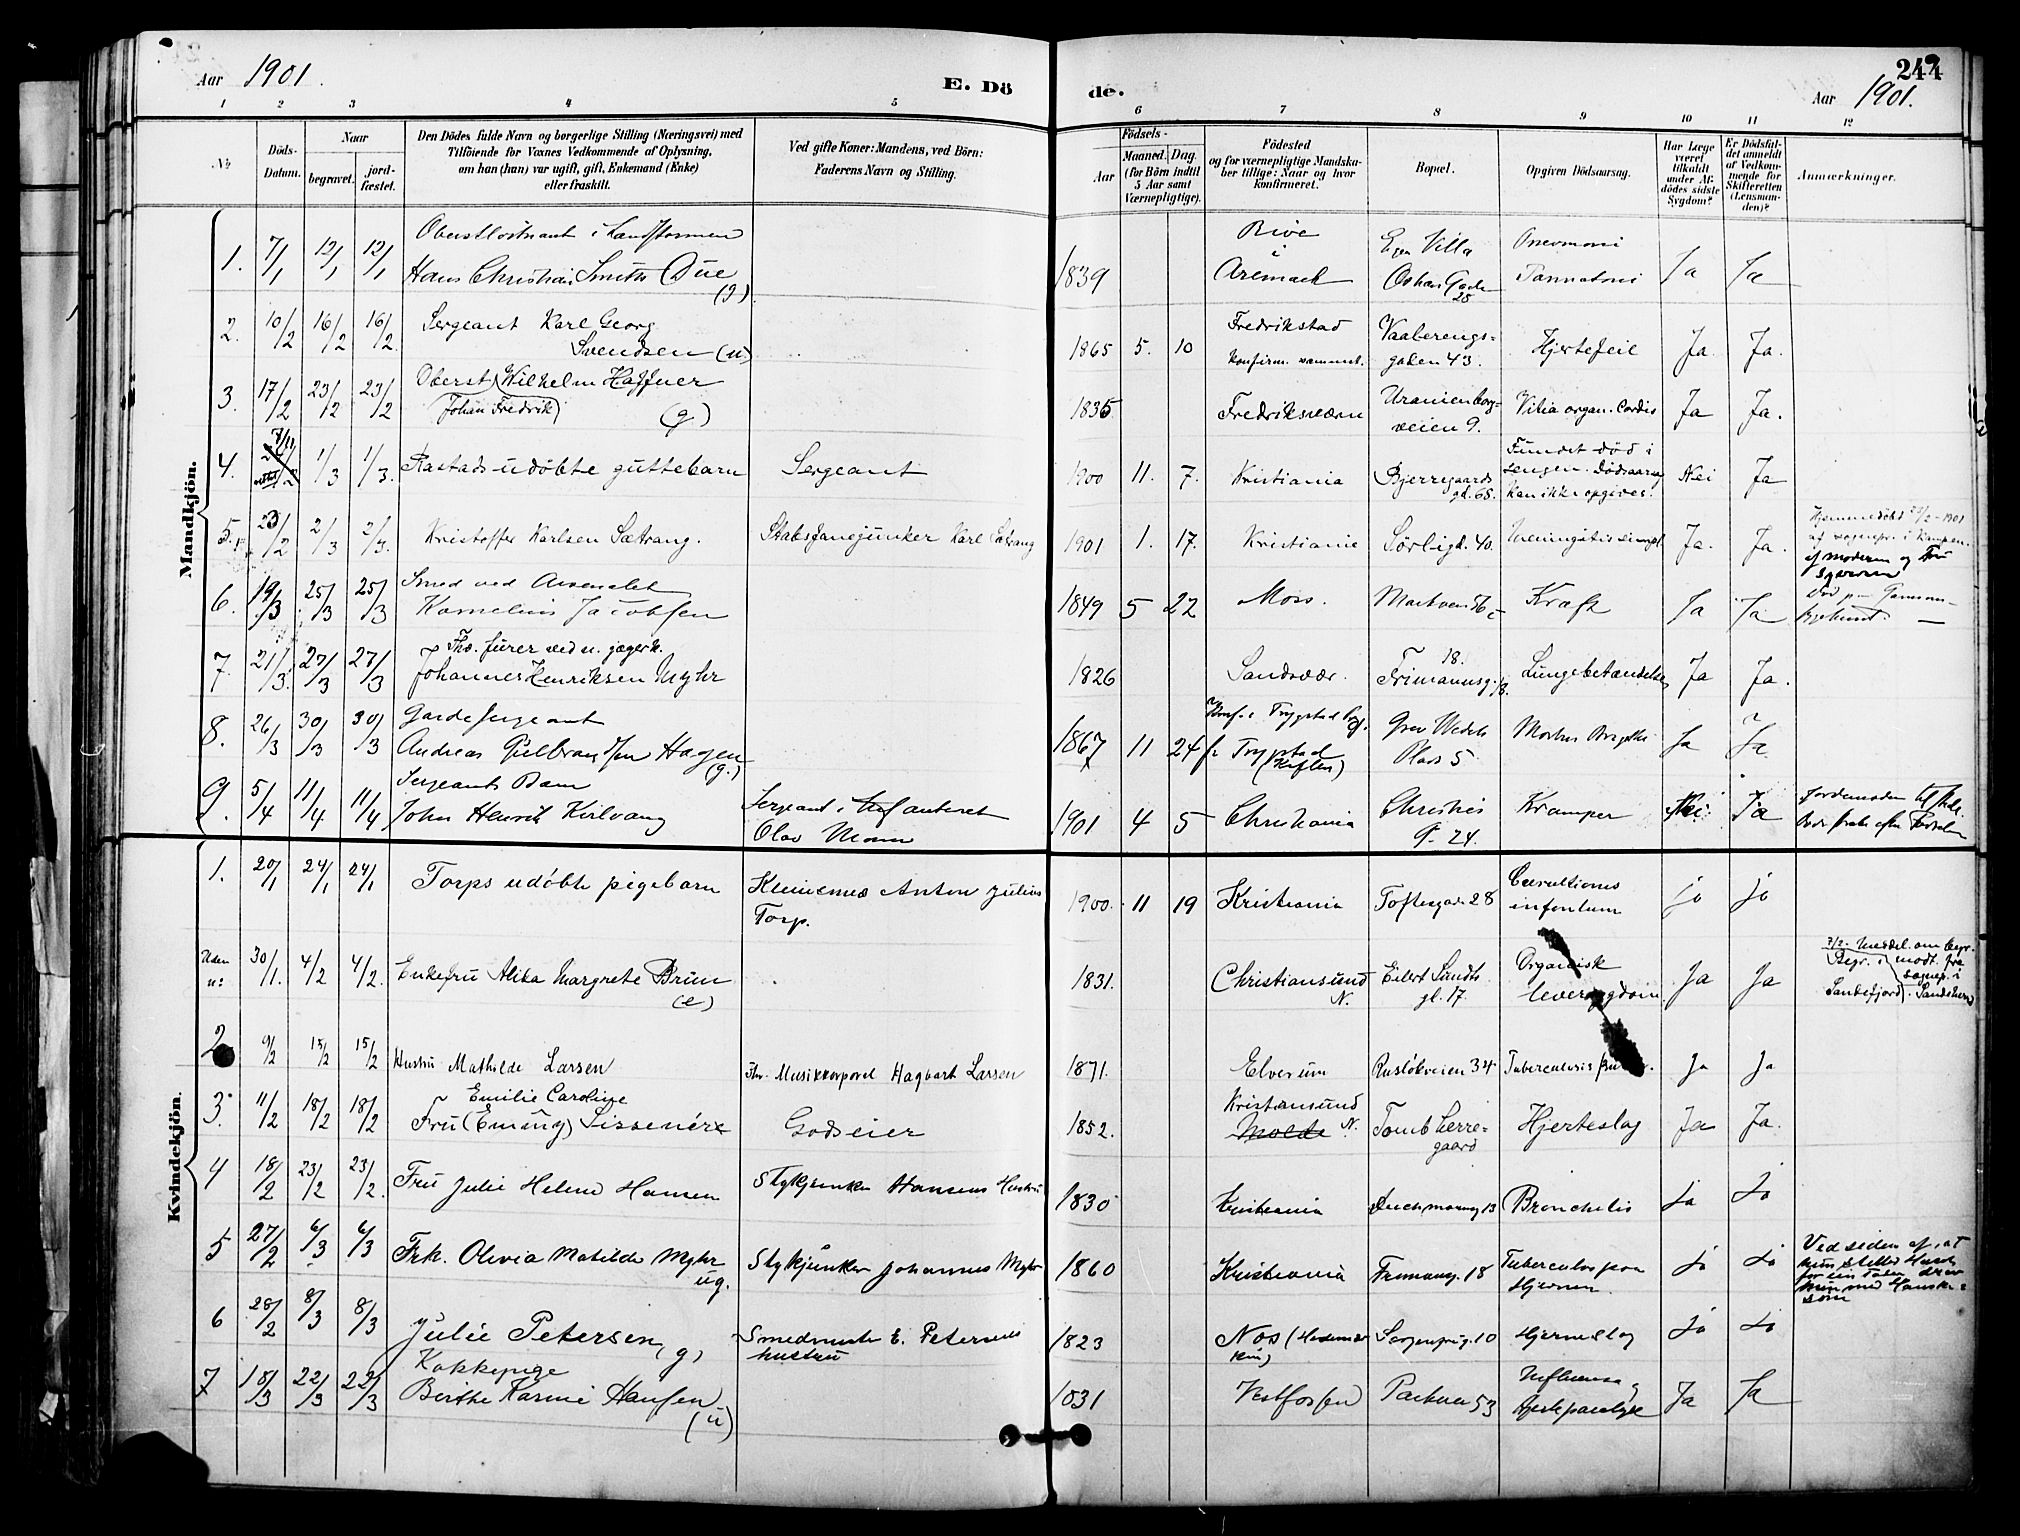 Aar 1901.
E. Dö
de.
244
Aar 1901.
1 2 3 4 5 6 7 8 9 10 11 12
No
Döds-
Datum.
Naar
begravet.
jord-
fæstet.
Den Dödes fulde Navn og borgerlige Stilling (Næringsvei) med
Tilföiende for Voxnes Vedkommende af Oplysning,
om han (hun) var ugift, gift, Enkemand (Enke)
eller fraskilt.
Ved gifte Koner: Mandens, ved Börn:
Faderens Navn og Stilling.
Födsels-
Aar
Maaned.
Dag
(for Börn indtil
5 Aar samt
Værnepligtige).
Födested
og for værnepligtige Mandska-
ber tillige: Naar og hvor
konfirmeret.
Bopæl.
Opgiven Dödsaarsag.
Har Læge
været
tilkaldt
under Af-
dödes sidste
Sygdom?
Er Dödsfal-
det anmeldt
af Vedkom-
mende for
Skifteretten
(Lensman-
den)?
Anmærkninger.
Mandkjön.
1. 7/1 12/1 12/1 Oberstløitnant i Landstormen
Hans Christian Smith Due (g) 1839
Aremark
Egen Villa
Oskars Gade 25
Ja Ja
2. 10/2 16/2 16/2 Sergeant Karl Georg
Svendsen (u) 1865 5. 10 Fredrikstad
konfirm. sammest.
Vaalerengs-
gaten 43.
Hjertefeil Ja. Ja.
3. 17/2 23/2 23/2 Oberst Wilhelm Haffner
(Johan Fredrik) (g) 1835 Fredriksværn
Uranienborg-
veien 9.
Vitia organ. Cordis Ja Ja.
4. 1/3 1/3. Rastads udøbte guttebarn Sergeant
1900 11. 7. Kristiania
Bjerregaards
gd. 65.
Fundet død i
sengen. Dødsaarsag
kan ikke opgives. Nei Ja
5. 2/3 2/3. Kristoffer Karlsen Sætrang. Stabsfanejunker Karl Sætrang
1901 1. 17. Kristiania Sörligd. 40. Ja. Ja.
Hjemmedøbt
af sognepr. i Kampen.
af moderen og Fru
6. 19/3 25/3 25/3 Smed ved Arsenalet
Kornelius Jacobsen 1849 5 22 Moss. Kræft Ja Ja
7. 21/3. 27/3 27/3 Fhv. furer ved n. jægerk.
Johannes Henriksen Myhr 1826 Sandsvær. 18.
Frimannsg. Lungebetændelse Ja Ja.
8. 26/3 30/3 30/3 Gardesergeant
Andreas Gulbrandsen Hagen (g.) 1867 11 24 Trygstad
Grev Wedels
Plads 5
Ja Ja
9. 5/4 11/4 11/4 Sergeants Barn
John Henrik Kirkvaag
Sergeant i Infanteriet
Olav Moan
1901 4 5 Christiania Christies
G. 24.
Kramper Nei Ja
Kvindekjön.
1. 20/1 24/1 24/1 Torps udøbte pigebarn Anton Julius
Torp.
1900. 11 19 Kristiania Toftesgade 28
infantum ja ja
Uden
n: 30/1. 4/2 4/2. Enkefru Alika Margrete Brun (e) 1831. Christiansund
N.
Eilert Sundts
gd. 17.
Organisk
leversygdom Ja Ja
Sandefjord
2 9/2 15/2 15/2 Hustru Mathilde Larsen Fhv. Musikkorporal Hagbart Larsen
1871. Elverum Rusløkveien 34 Tuberculosis Ja Ja
3. 11/2 18/2 18/2 Emilie Caroline
Fru (Emmy) Sissenér Godseier
1852. Kristiansund
N.
Molde
Tomb herre-
gaard
Hjerteslag Ja Ja.
4 18/2 23/2 23/2. Fru Julie Helene Hansen Stykjunker Hansens Hustru
1830 Kristiania Bronchitis Ja Ja
5 27/2 6/3 6/3 Frk. Olivia Matilde Myhr
ug. Stykjunker Johannes Myhr
1860 Kristiania Frimansg. 18 Tuberculos paa
Hjernen Ja Ja
Ved siden af, at
6 28/2 8/3 8/3 Julie Petersen (g) Smedmester E. Petersens
hustru
1823 Sorgenfrig. 10 Hjerneslag Ja Ja
7 18/3 22/3 22/3 Kokkepige
Berthe Karine Hansen (u) 1831 Vestfossen Parkvn 53 Influensa
Hjerteparalyse Ja Ja